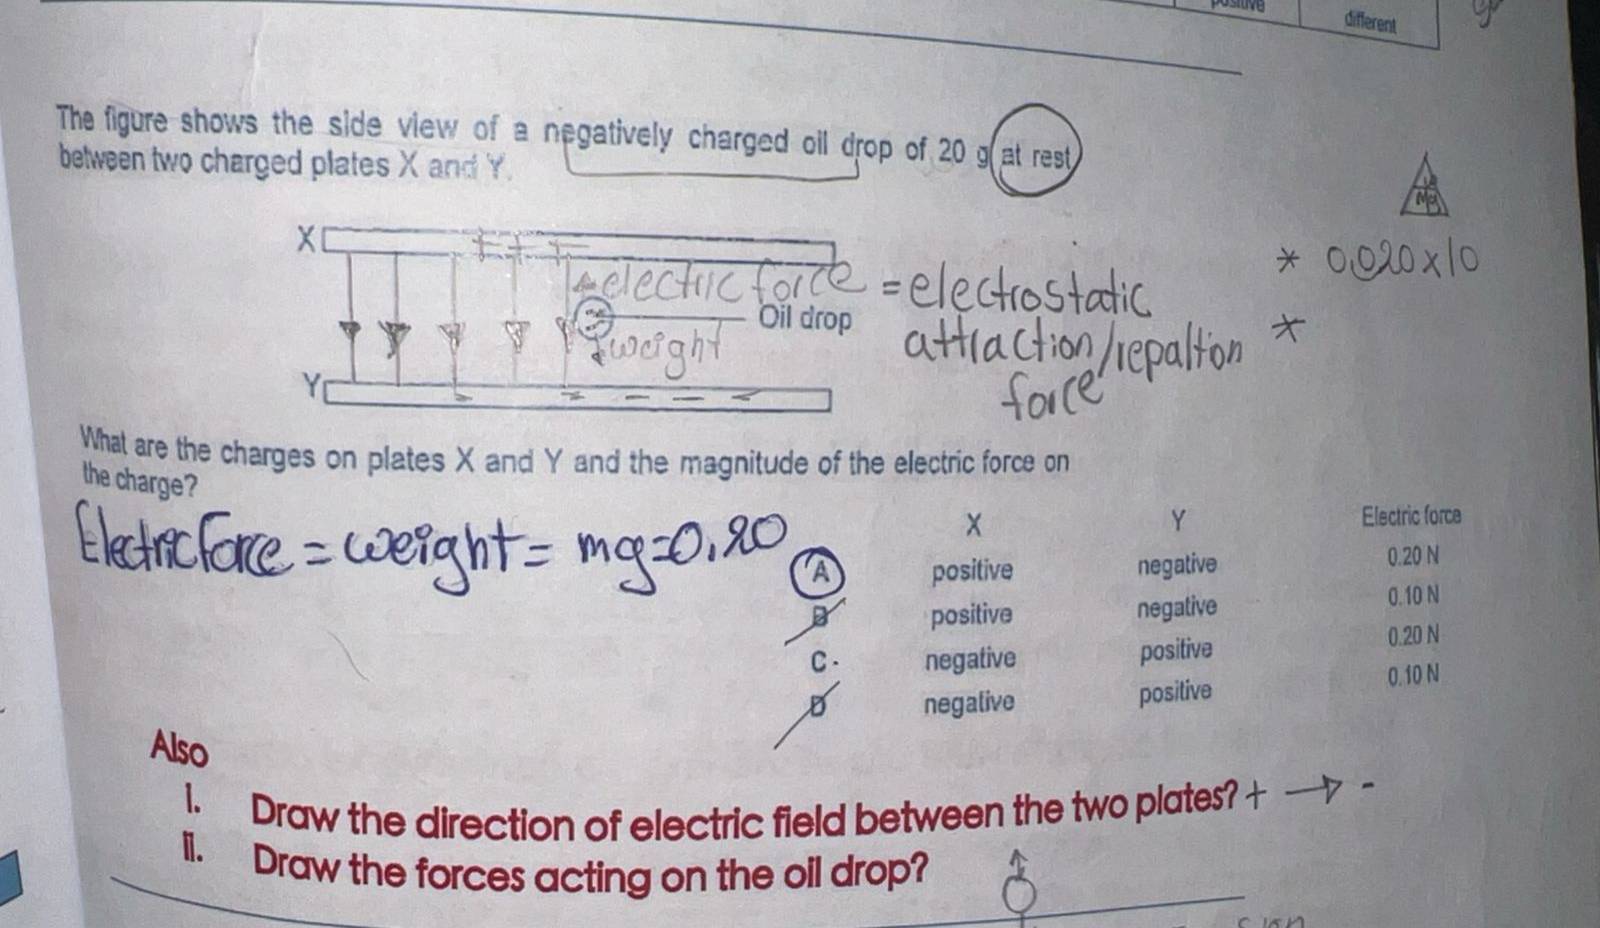 positive different
The figure shows the side view of a negatively charged oil drop of 20 g at rest
between two charged plates X and Y.
X
+ + +
electric force = electrostatic
attraction/repaltion
force
* 0.020x10
*
Oil drop
weight
Y
- - - -
What are the charges on plates X and Y and the magnitude of the electric force on
the charge?
Electric force = weight = mg=0.20
X Y Electric force
A positive negative 0.20 N
B positive negative 0.10 N
C. negative positive 0.20 N
D negative positive 0.10 N
Also
I. Draw the direction of electric field between the two plates? + → -
II. Draw the forces acting on the oil drop?